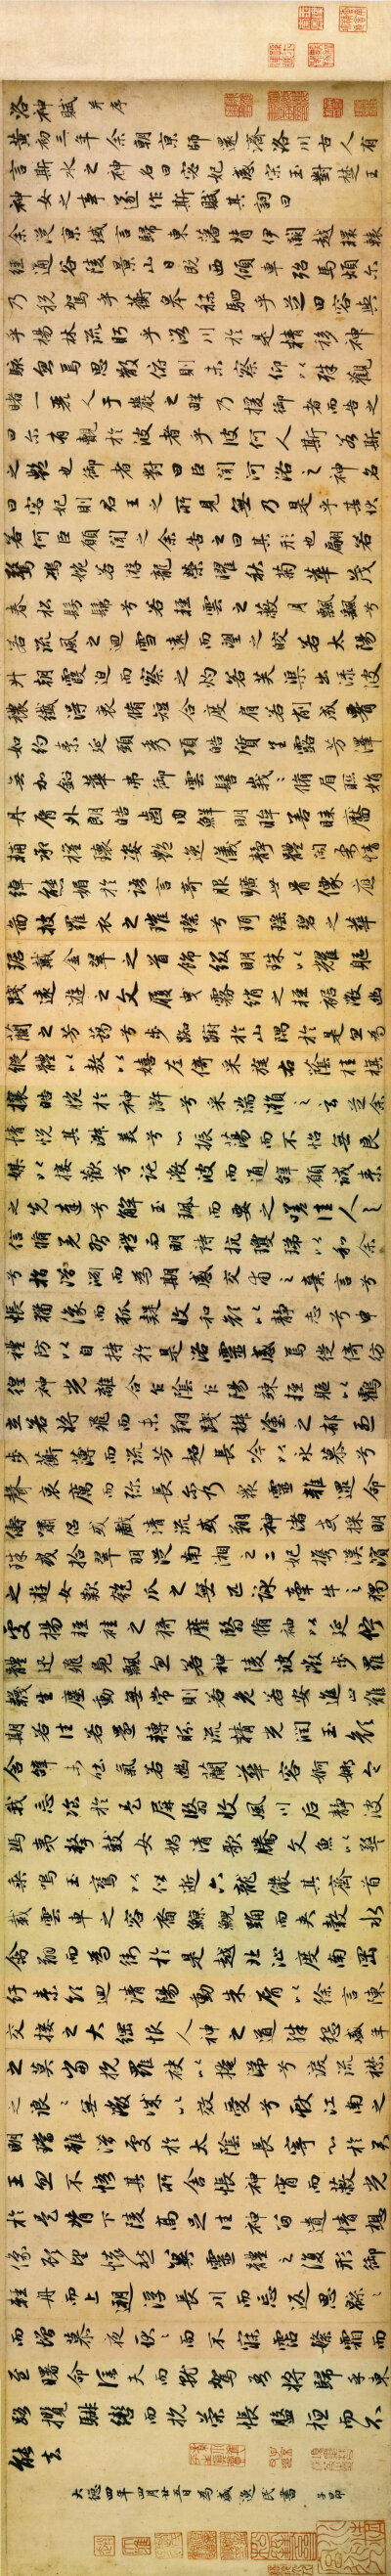 洛神賦 并序
黃初三年余朝京師還濟洛川古人有
言斯水之神名曰宓妃感宋玉對楚王
神女之事遂作斯賦其詞曰
余從京域言歸東藩背伊闕越轘轅
經通谷陵景山日既西傾車殆馬煩尔
乃稅駕乎蘅皋秣駟乎芝田容與
乎楊林流眄乎洛川於是精移神
駭忽焉思散俯則未察仰以殊觀
睹一麗人于巖之畔乃援御者而告之
曰尔有覿於彼者乎彼何人斯若斯
之艷也御者對曰臣聞河洛之神名
曰宓妃則君王之所見無乃是乎其狀
若何臣願聞之余告之曰其形也翩若
驚鴻婉若游龍榮曜秋菊華茂
春松髣髴兮若輕雲之蔽月飄颻兮
若流風之迴雪遠而望之皎若太陽
升朝霞迫而察之灼若芙蕖出淥波
穠纖得衷脩短合度肩若削成署
如約素延頸秀項皓質呈露芳澤
無加鉛華弗御雲髻峩峩脩眉聯娟
丹唇外朗皓齒內鮮明眸善睞靨
輔承權瓌姿艷逸儀靜體閑柔情
綽態媚於語言奇服曠世骨像應
圖披羅衣之璀粲兮珥瑤碧之華
琚戴金翠之首飾綴明珠以耀軀
踐遠遊之文履曳霧綃之輕裾微幽
蘭之芳藹兮步踟躕於山隅於是忽焉
縱體以敖以嬉左倚采旄右蔭桂旗
攘皓腕於神滸兮采湍瀨之玄芝余
情悅其淑美兮心振蕩而不怡無良
媒以接歡兮託微波而通辭願誠素
之先達兮解玉珮而要之嗟佳人之
信脩羌習禮而明詩抗瓊珶以和余
兮指潛淵而為期感交甫之棄言兮
悵猶豫而狐疑收和顏以靜志兮申
禮防以自持於是洛靈感焉徙倚彷
徨神光離合乍陰乍陽竦輕軀以鶴
立若將飛而未翔踐椒塗之郁烈
步蘅薄而流芳超長吟以永慕兮
聲哀厲而彌長尔乃眾靈雜遝命
儔嘯侶或戲清流或翔神渚或採明
珠或拾翠羽從南湘之二妃携漢濱
之遊女歎匏瓜之無匹詠牽牛之獨
處揚輕袿之猗靡翳脩袖以延佇
體迅飛鳧飄忽若神陵波微步羅
襪生塵動無常則若危若安進止難
期若往若還轉眄流精光潤玉顏
含辭未吐氣若幽蘭華容婀娜令
我忘飡於是屏翳收風川后靜波
馮夷擊鼓女媧清歌騰文魚以警
乘鳴玉鸞以偕逝六龍儼其齊首
載雲車之容裔鯨鯢踴而夾轂水
禽翔而為衛於是越北沚度南岡
紆素領迴清陽動朱唇以徐言陳
交接之大綱恨人神之道殊怨盛年
之莫當抗羅袂以掩涕兮淚流襟
之浪浪無微情以效愛兮獻江南之
明璫雖潛處於太陰長寄心於君
王忽不悟其所舍悵神宵而蔽光
於是背下陵高足往神留遺情想
像顧望懷愁冀靈體之復形御
輕舟而上遡浮長川而忘返思緜緜
而增慕夜耿耿而不寐霑繁霜而
至曙命僕夫而就駕吾將歸乎東
路攬騑轡而抗策悵盤桓而不
能去
大德四年四月廿五日為盛逸民書 子昂